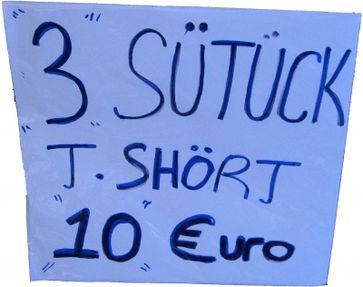 "3" SÜTÜCK
T. SHÖRT
"10" €uro